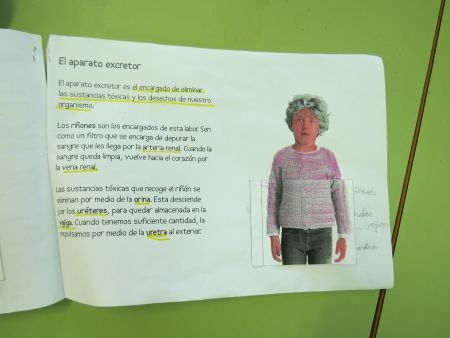 El aparato excretor
El aparato excretor es el encargado de eliminar
las sustancias tóxicas y los desechos de nuestro
organismo.
Los riñones son los encargados de esta labor. Son
como un filtro que se encarga de depurar la
sangre que les llega por la arteria renal. Cuando la
sangre queda limpia, vuelve hacia el corazón por
la vena renal.
Las sustancias tóxicas que recoge el riñón se
eliminan por medio de la orina. Esta desciende
por los uréteres, para quedar almacenada en la
vejiga. Cuando tenemos suficiente cantidad, la
expulsamos por medio de la uretra al exterior.